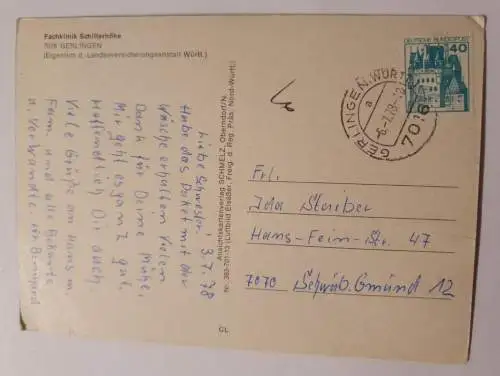 Fachklinik Schillerhöhe
7016 GERLINGEN
(Eigentum d. Landesversicherungsanstalt Württ.)
3.7.78
Liebe Schwester,
Habe das Paket mit der
Wäsche erhalten Vielen
Dank für Deine Mühe.
Mir geht es ganz gut.
Hoffentlich Dir auch.
Viele Grüße an Hans m.
Fam. und alle Bekannte
u. Verwandte.
Ansichtskartenverlag SCHMELZ Oberndorf/N.
(Luftbild Elsäßer, Freig. d. Reg. Präs. Nord-Württ.)
CL
DEUTSCHE BUNDESPOST
40
GERLINGEN, WÜRTT
a
-6.-7.78-
7016
Frl.
Ida Streiber
Hans-Fein-Str. 47
7070 Schwäb. Gmünd 12